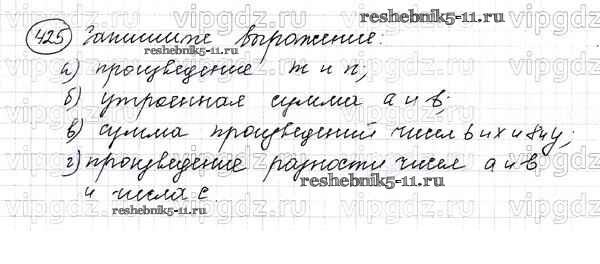 425 Запишите выражение:
а) произведение m и n;
б) утроенная сумма a и b;
в) сумма произведений чисел 6 и x и 8 и y;
г) произведение разности чисел a и b
и числа c.
reshebnik5-11.ru
reshebnik5-11.ru
reshebnik5-11.ru
reshebnik5-11.ru
vipgdz.ru